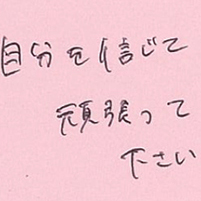 自分を信じて
頑張って
下さい